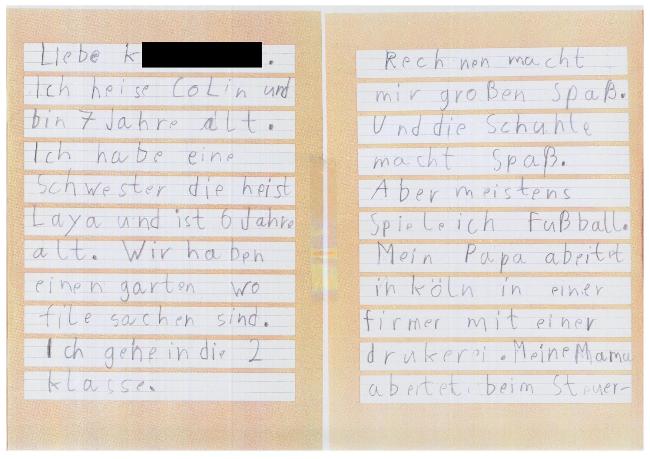 Liebe K .
Ich heise Colin und
bin 7 Jahre alt.
Ich habe eine
Schwester die heist
Laya und ist 6 Jahre
alt. Wir haben
einen garten wo
file sachen sind.
Ich gehe in die 2
klasse.
Rechnen macht
mir großen Spaß.
Und die Schuhle
macht Spaß.
Aber meistens
Spiele ich Fußball.
Mein Papa abeitet
in köln in einer
firmer mit einer
drukerei. Meine Mama
abeitet beim Steuer-